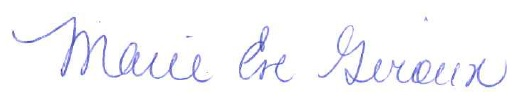 Marie Eve Giroux